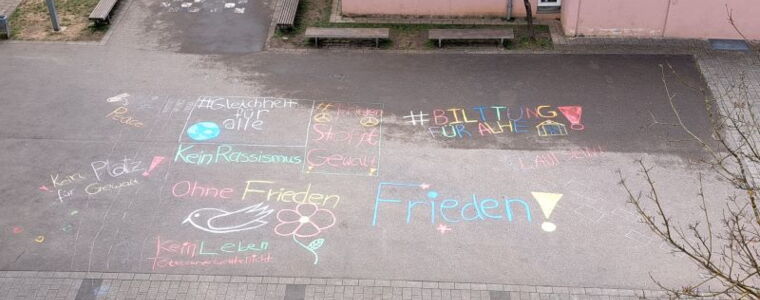 Peace
#Gleichheit
für
alle
#Frieden
Stoppt
Gewalt
#BILTTUNG!
FÜR ALHE
Kein Rassismus
Kein Platz!
für Gewalt
Ohne Frieden
Frieden!
Kein Leben